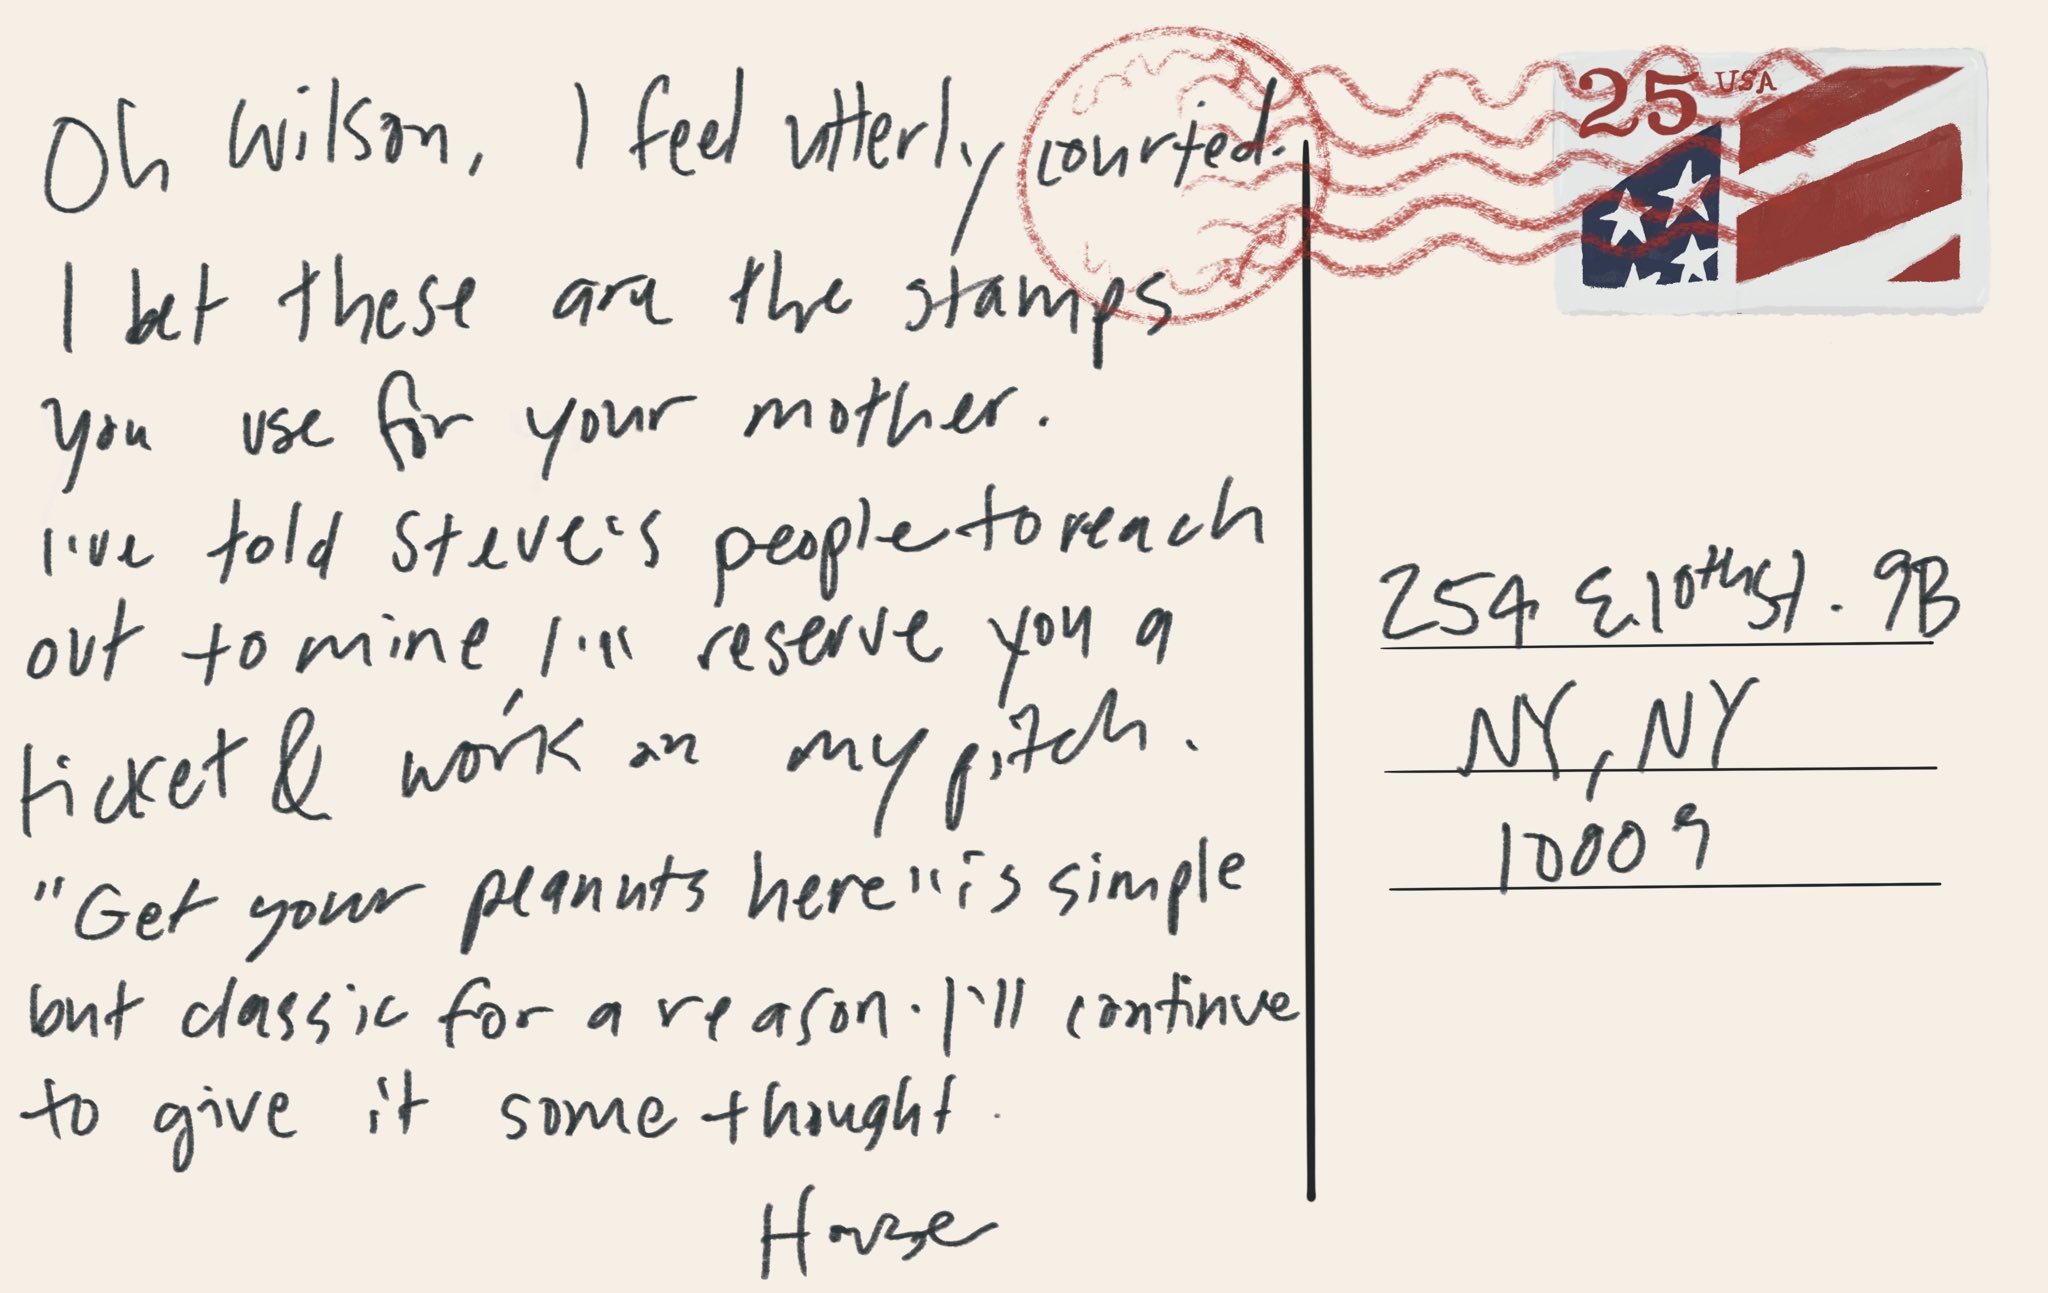 Oh Wilson, I feel utterly courted.
I bet these are the stamps
you use for your mother.
I've told Steve's people to reach
out to mine I'll reserve you a
ticket & work on my pitch.
"Get your peanuts here" is simple
but classic for a reason. I'll continue
to give it some thought.
House
25 USA
254 E. 10th St. 9B
NY, NY
10009